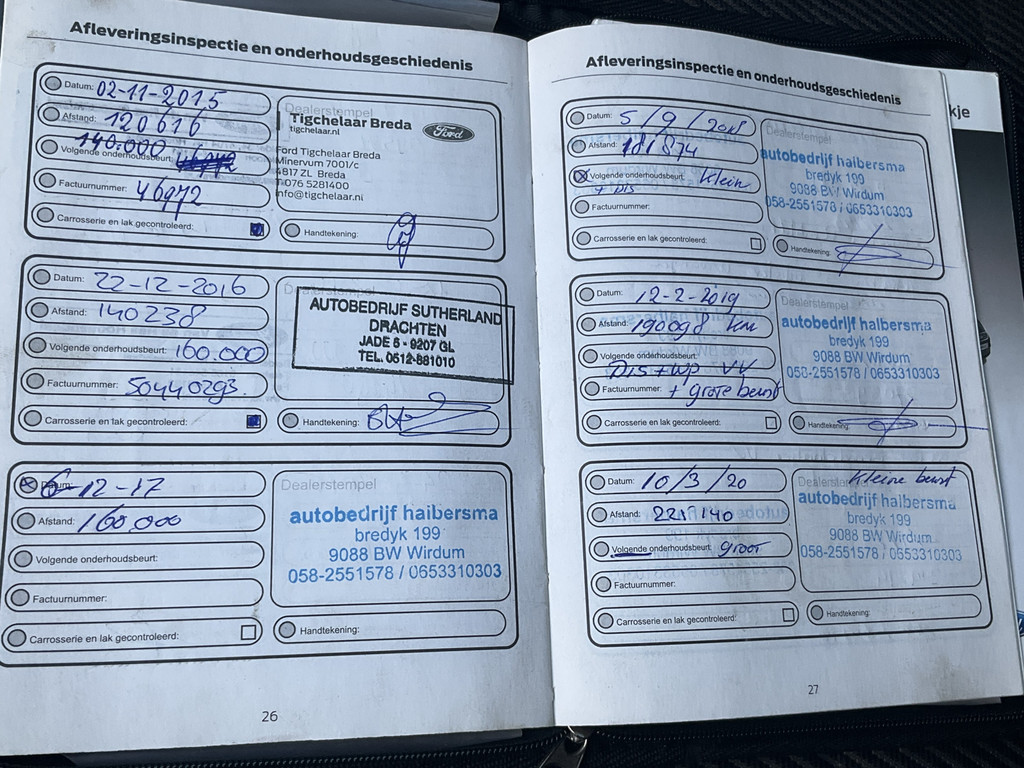 Afleveringsinspectie en onderhoudsgeschiedenis
Datum: 02-11-2015
Afstand: 120616
140.000
Volgende onderhoudsbeurt: 46972
Factuurnummer: 46972
Carrosserie en lak gecontroleerd:
Dealerstempel
Tigchelaar Breda
tigchelaar.nl
Ford
Ford Tigchelaar Breda
Minervum 7001/c
4817 ZL Breda
076 5281400
info@tigchelaar.nl
Handtekening:
Datum: 22-12-2016
Afstand: 140238
Volgende onderhoudsbeurt: 160.000
Factuurnummer: 50440293.
Carrosserie en lak gecontroleerd:
AUTOBEDRIJF SUTHERLAND
DRACHTEN
JADE 6 - 9207 GL
TEL. 0512-881010
Handtekening:
Datum: 6-12-17
Afstand: 160.000
Volgende onderhoudsbeurt:
Factuurnummer:
Carrosserie en lak gecontroleerd:
Dealerstempel
autobedrijf halbersma
bredyk 199
9088 BW Wirdum
058-2551578 / 0653310303
Handtekening:
26
Afleveringsinspectie en onderhoudsgeschiedenis
Datum: 5/9/2018
Afstand: 181874
Volgende onderhoudsbeurt: Klein
+ Dis
Factuurnummer:
Carrosserie en lak gecontroleerd:
Dealerstempel
autobedrijf halbersma
bredyk 199
9088 BW Wirdum
058-2551578 / 0653310303
Handtekening:
Datum: 12-2-2019
Afstand: 190098 km
Volgende onderhoudsbeurt:
Dis + WP VV
Factuurnummer: + grote beurt
Carrosserie en lak gecontroleerd:
Dealerstempel
autobedrijf halbersma
bredyk 199
9088 BW Wirdum
058-2551578 / 0653310303
Handtekening:
Datum: 10/3/20
Afstand: 221140
Volgende onderhoudsbeurt: groot
Factuurnummer:
Carrosserie en lak gecontroleerd:
Dealerstempel Kleine beurt
autobedrijf halbersma
bredyk 199
9088 BW Wirdum
058-2551578 / 0653310303
Handtekening:
27
kje